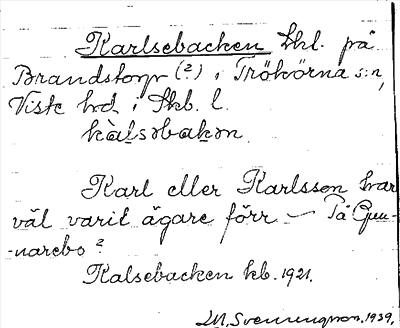 Karlsebacken skl. på
Brandstorp (?) i Trökörna s:n,
Viste hrd i Skb. l.
kàḷsəbakən
Karl eller Karlsson har
väl varit ägare förr – På Gun-
-narebo?
Kalsebacken kb. 1921.
M. Svenungson. 1939.